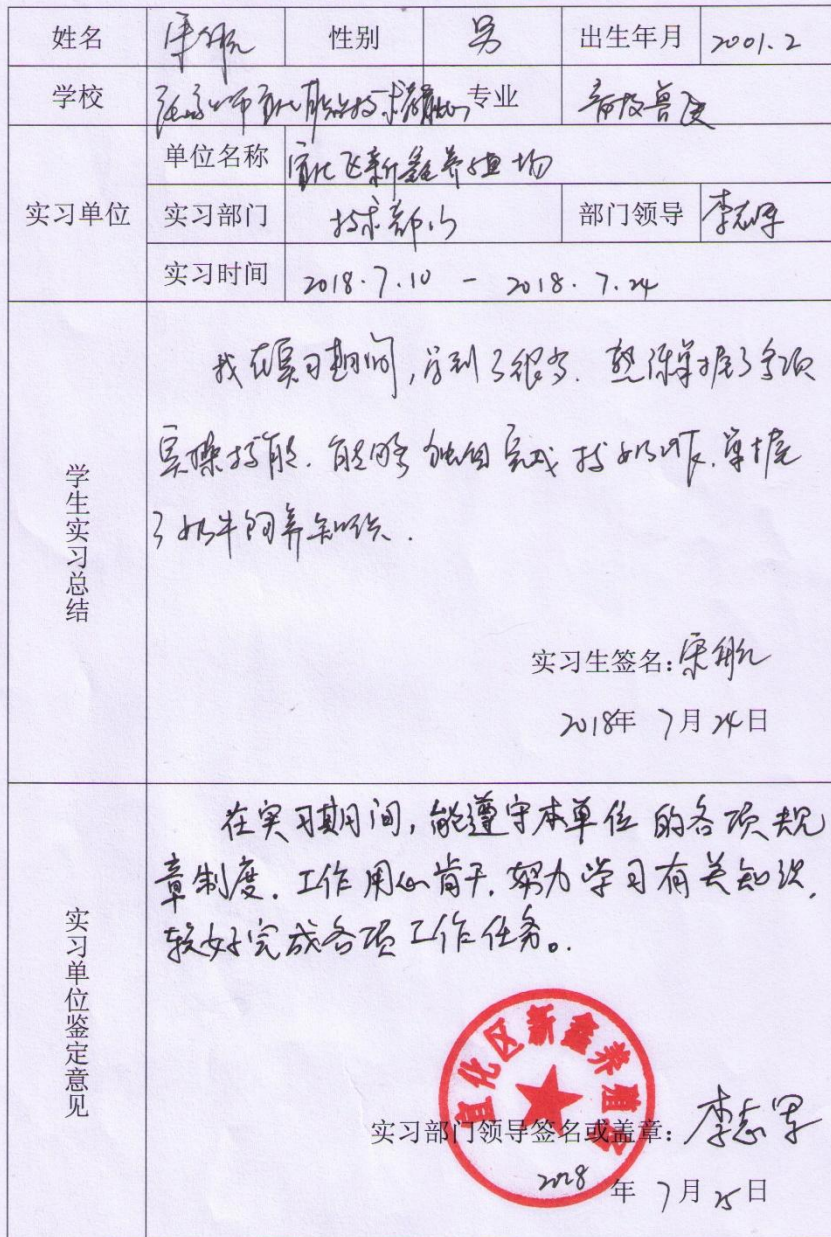 姓名 宋航 性别 男 出生年月 2001.2
学校 张家口市宣化职业技术教育中心 专业 畜牧兽医
实习单位 单位名称 宣化区新鑫养殖场
实习部门 技术部门 部门领导 李志军
实习时间 2018.7.10 - 2018.7.24
学生实习总结
我在实习期间,学到了很多.熟练掌握了多项
实操技能.能够独自完成挤奶工作.掌握
了奶牛饲养知识.
实习生签名:宋航
2018年 7月 24日
实习单位鉴定意见
在实习期间,能遵守本单位的各项规
章制度.工作用心肯干.努力学习有关知识.
较好完成各项工作任务。
宣化区新鑫养殖场
实习部门领导签名或盖章:李志军
2018 年 7月 25日